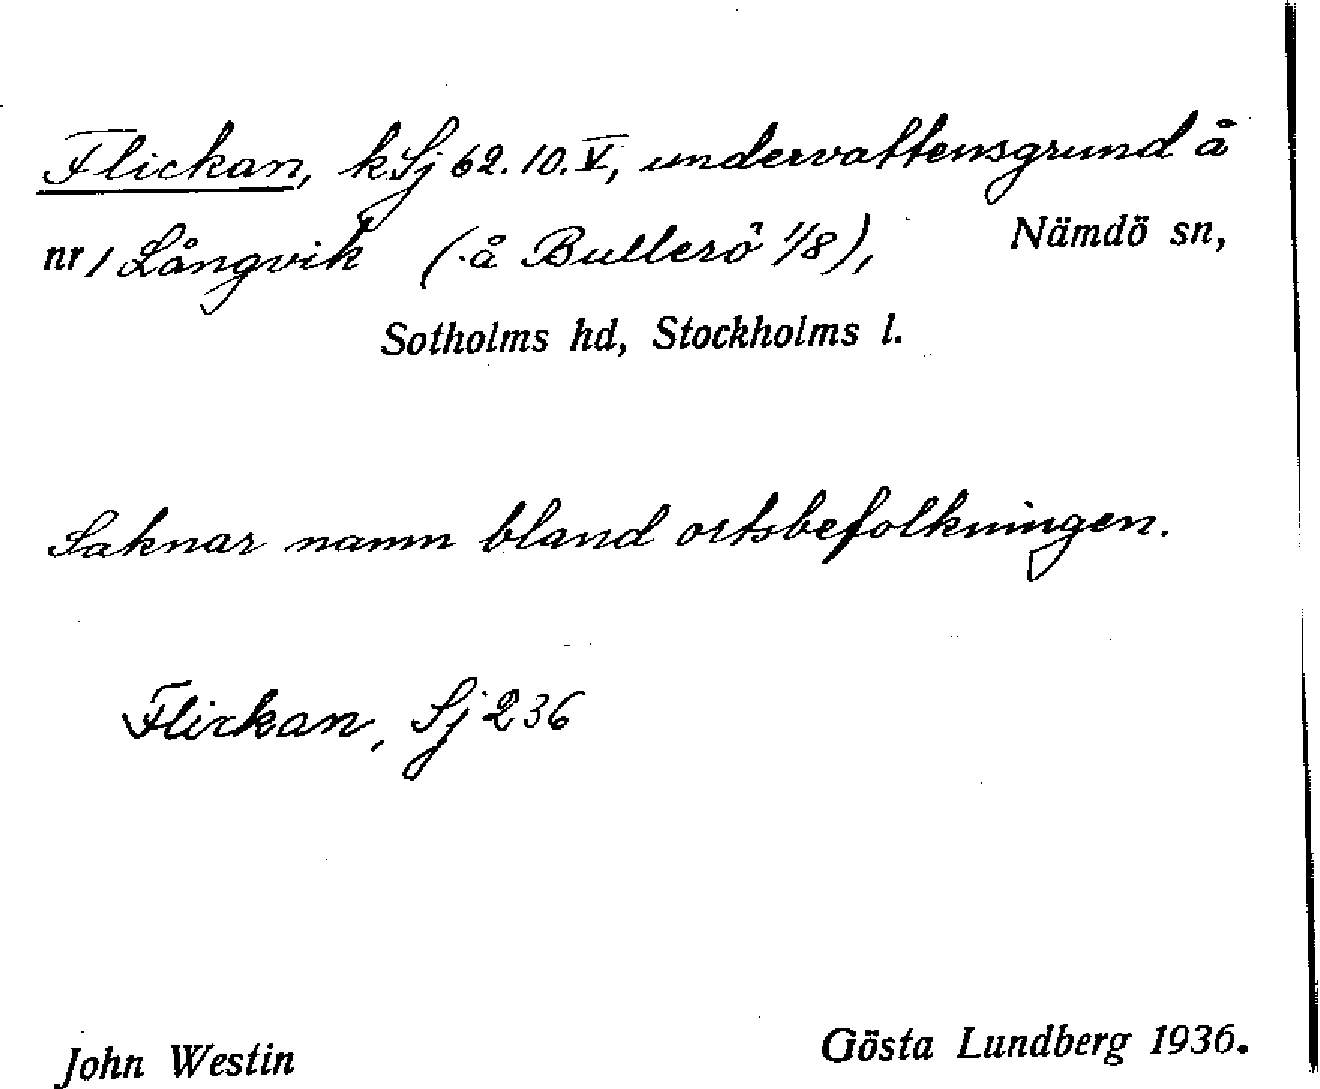 Flickan, kSj 62.10.V, undervattensgrund å
nr 1 Långvik (å Bullerö 1/8), Nämdö sn,
Sotholms hd, Stockholms l.
Saknar namn bland ortsbefolkningen.
Flickan, Sj 236
John Westin Gösta Lundberg 1936.